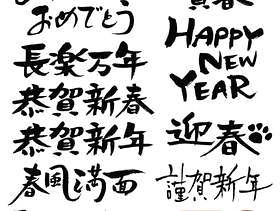 おめでとう
長楽万年
恭賀新春
恭賀新年
春風満面
賀春
HAPPY
NEW
YEAR
迎春
謹賀新年